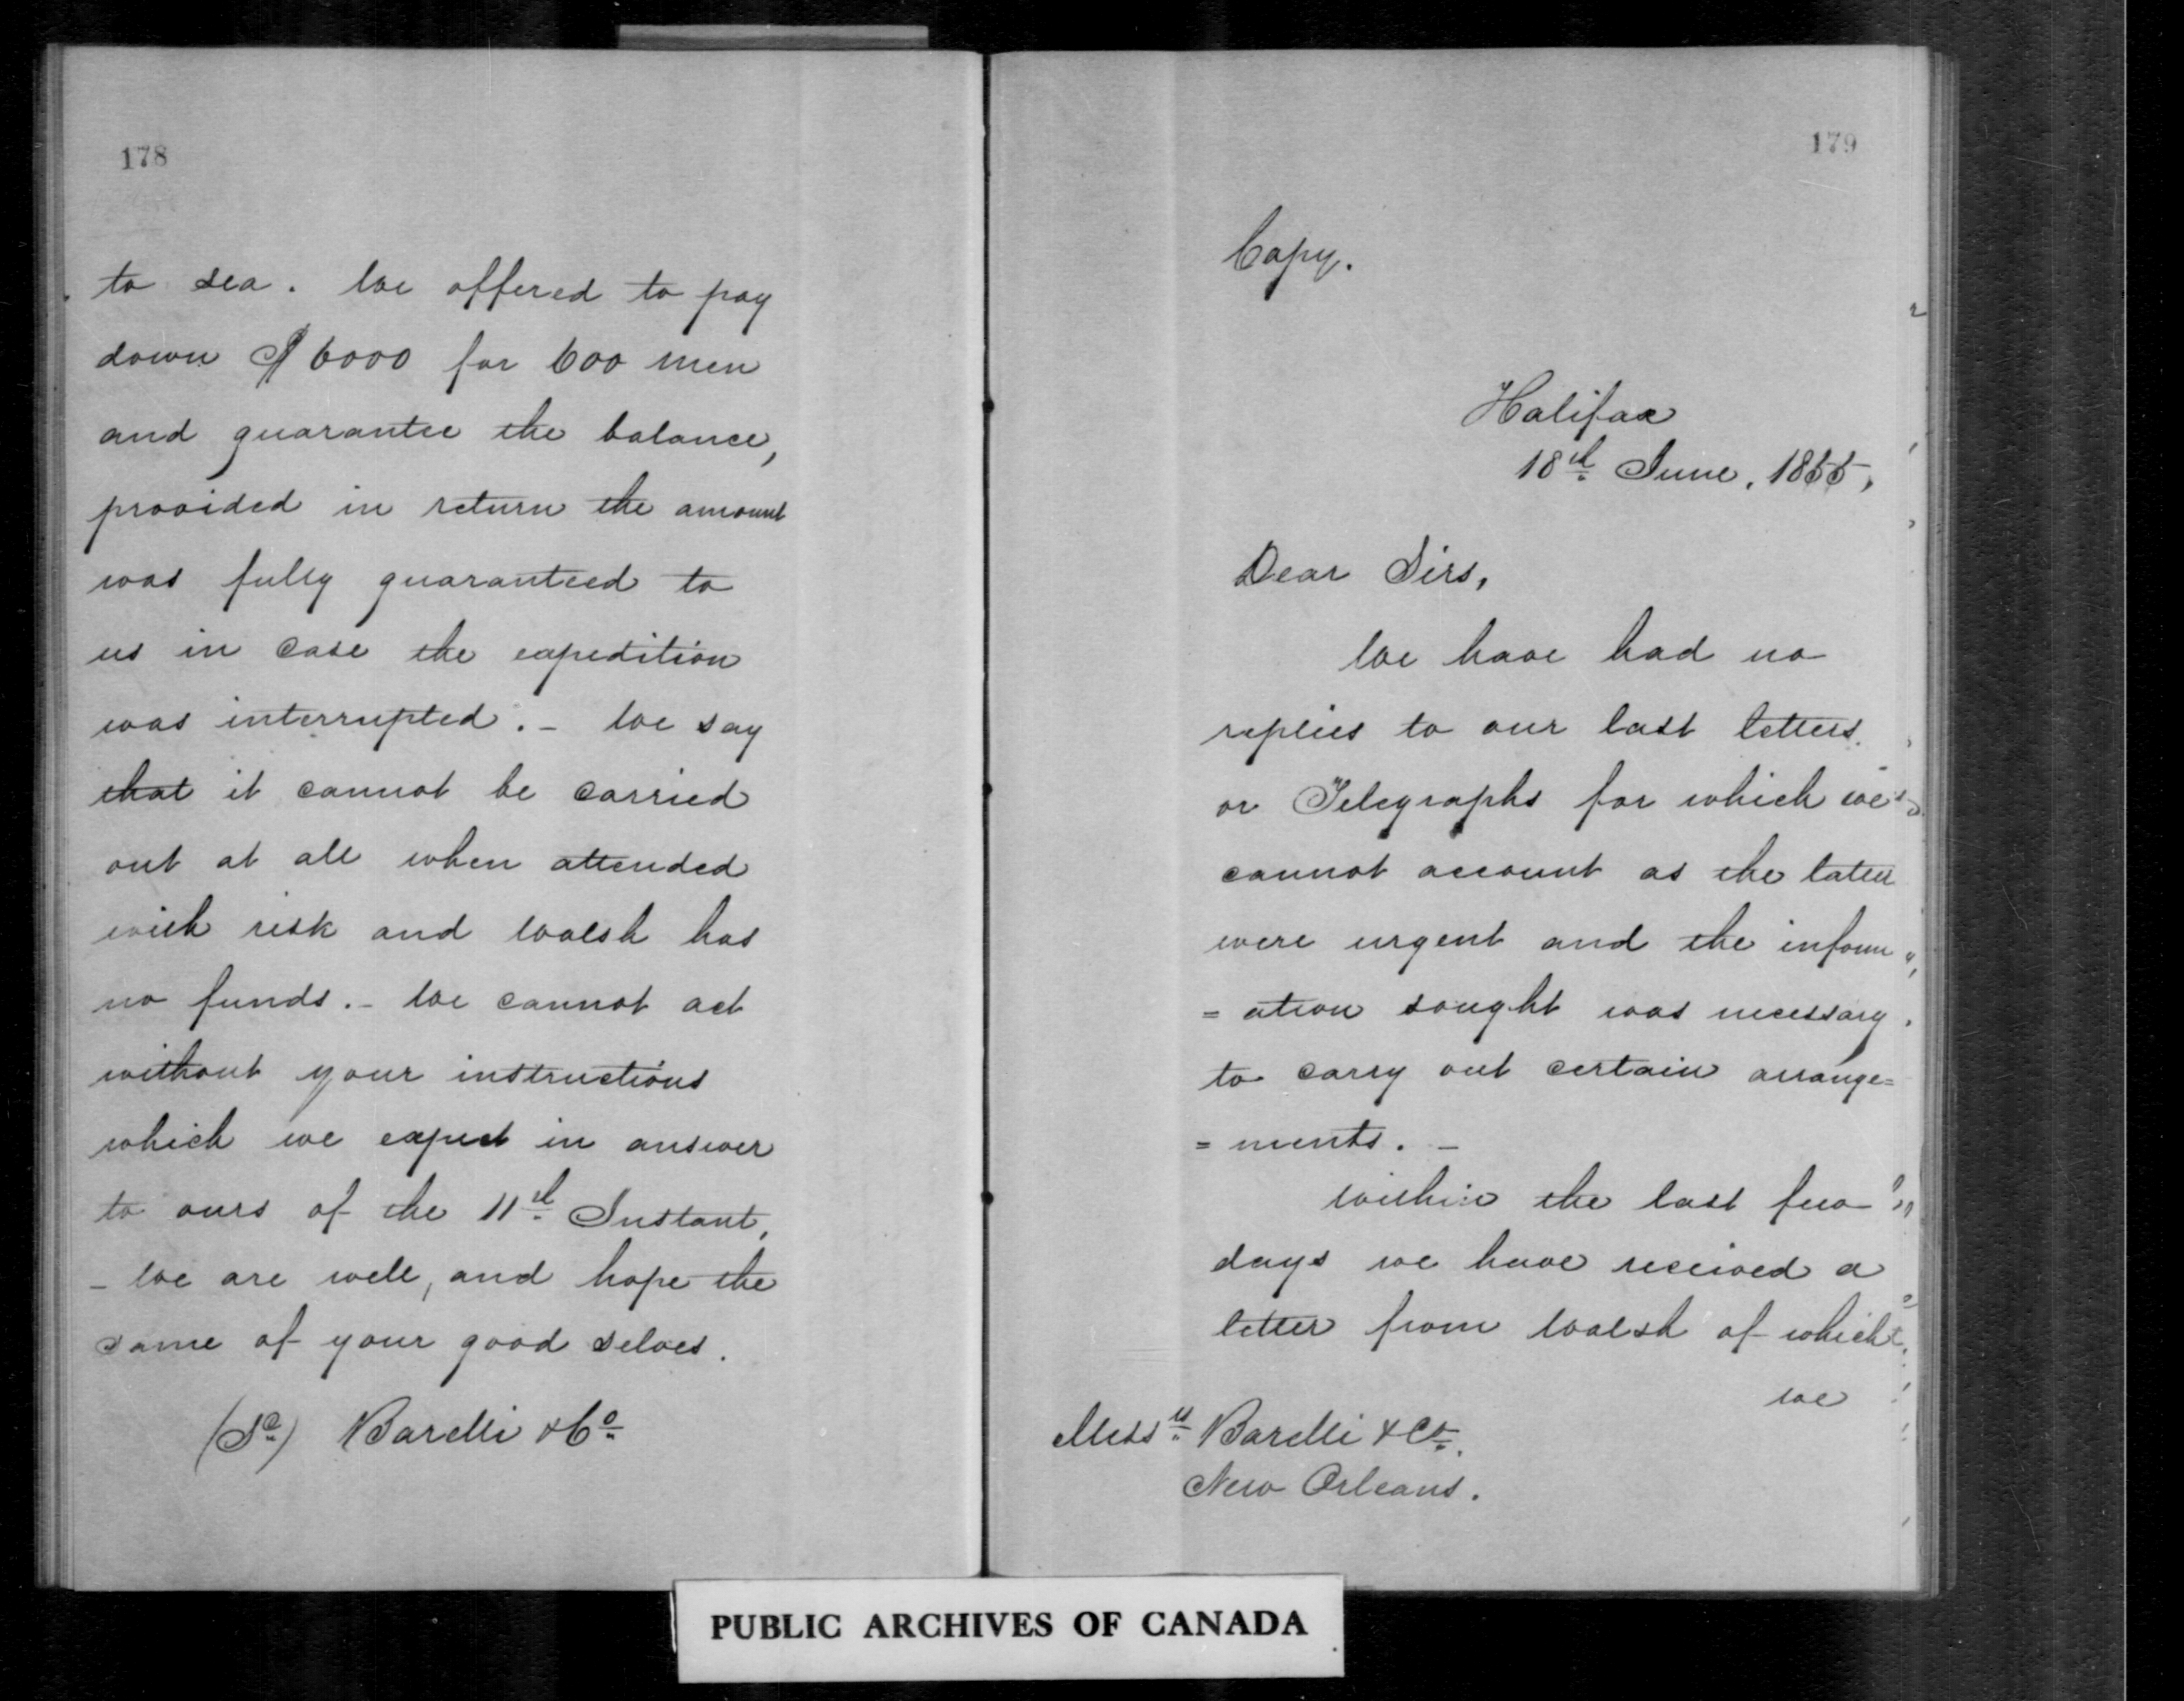 178
to sea. We offered to pay
down $6000 for 600 men
and guarantee the balance,
provided in return the amount
was fully guaranteed to
us in case the expedition
was interrupted. - We say
that it cannot be carried
out at all when attended
with risk and Walsh has
no funds. - We cannot act
without your instructions
which we expect in answer
to ours of the 11th Instant,
- We are well, and hope the
same of your good selves.
(Sd) Barelli & Co
179
Copy.
Halifax
18th June, 1855,
Dear Sirs,
We have had no
replies to our last letters
or Telegraphs for which we
cannot account as the latter
were urgent and the inform
= ation sought was necessary
to carry out certain arrange=
= ments. -
Within the last few
days we have received a
letter from Walsh of which
we
Messrs Barelli & Co.
New Orleans.
PUBLIC ARCHIVES OF CANADA